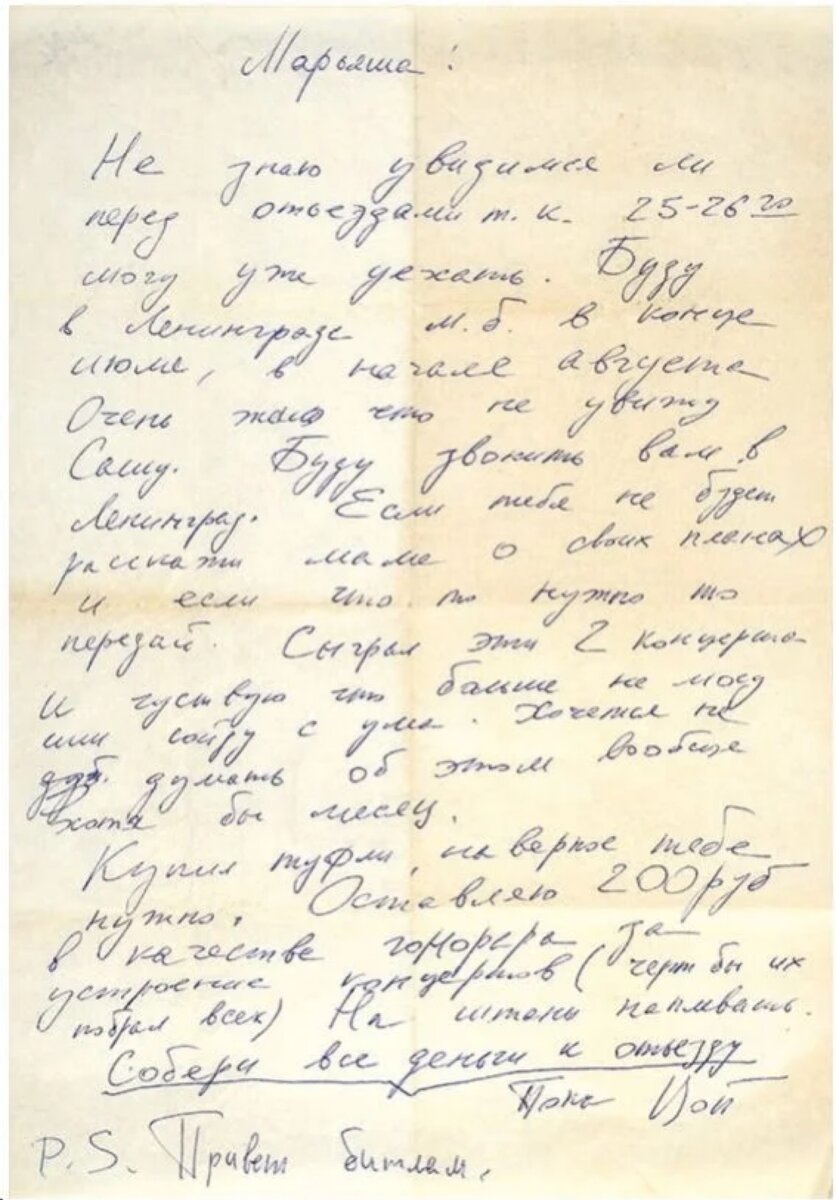 Марьяша!
Не знаю увидимся ли
перед отъездами т.к. 25-26го
могу уже уехать. Буду
в Ленинграде м.б. в конце
июля, в начале августа
Очень жаль что не увижу
Сашу. Буду звонить вам в
Ленинград. Если тебя не будет
расскажи маме о своих планах
и если что то нужно то
передай. Сыграл эти 2 концерта
И чуствую что больше не могу
или сойду с ума. Хочется не
думать об этом вообще
хотя бы месяц.
Купил туфли, наверное тебе
нужно. Оставляю 200 руб
в качестве гонорара за
устроение концертов (черт бы их
побрал всех) На штаны наплевать.
Собери все деньги к отъезду
Пока Цой
P.S. Привет битлам.